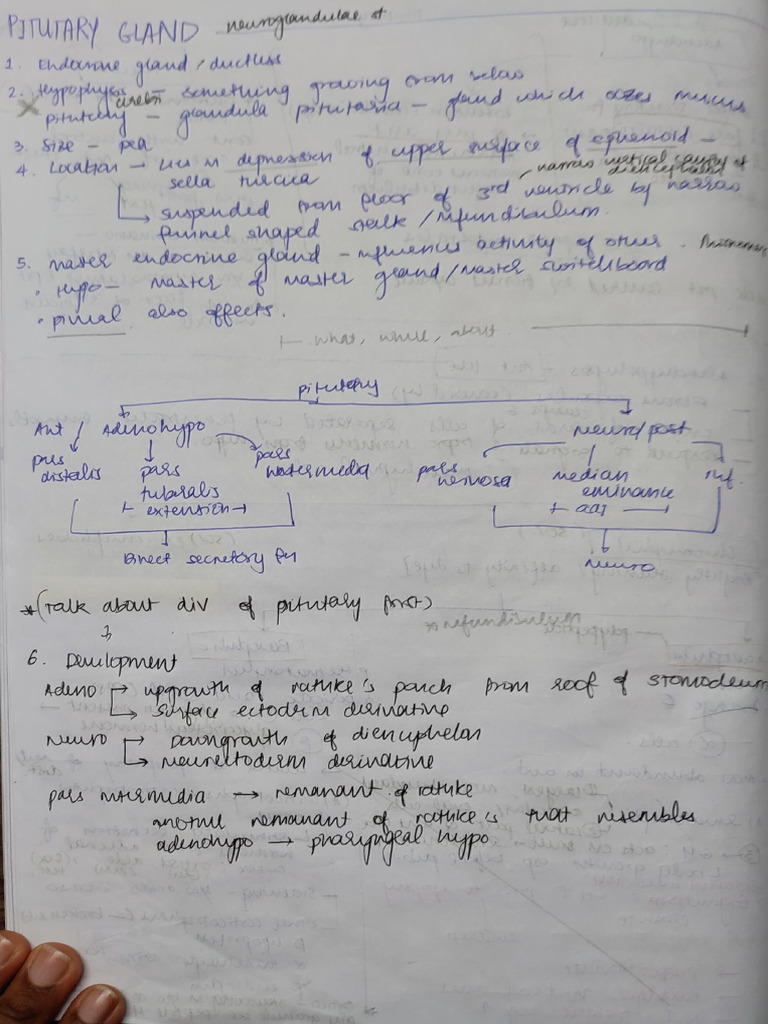 PITUTARY GLAND neuroglandulae
1. Endocrine gland / ductless
2. Hypophysis cerebri - something growing from below
pitutary - glandula pitutaria - gland which oozes mucus
3. Size - pea
4. Location → lie in depression of upper surface of sphenoid -
sella turcica , narrow vertical cavity of diencephalon
↳ suspended from floor of 3rd ventricle by narrow
funnel shaped stalk / infundibulum.
5. Master endocrine gland - influences activity of other.
• Hypo - master of master gland / master switchboard
• pineal also effects.
pitutary
Ant / Adenohypo Neuro/post
pars distalis pars tuberalis pars intermedia pars nervosa median eminance inf.
← extension →
Direct secretory fn Neuro
*(Talk about div of pitutary first)
6. Development
Adeno → upgrowth of rathke's pouch from roof of stomodeum
↳ surface ectoderm derivative
Neuro → Downgrowth of diencephelon
↳ neuroectoderm derivative
pars intermedia → remanant of rathke
another remanant of rathke's that resembles
adenohypo → pharyngeal hypo